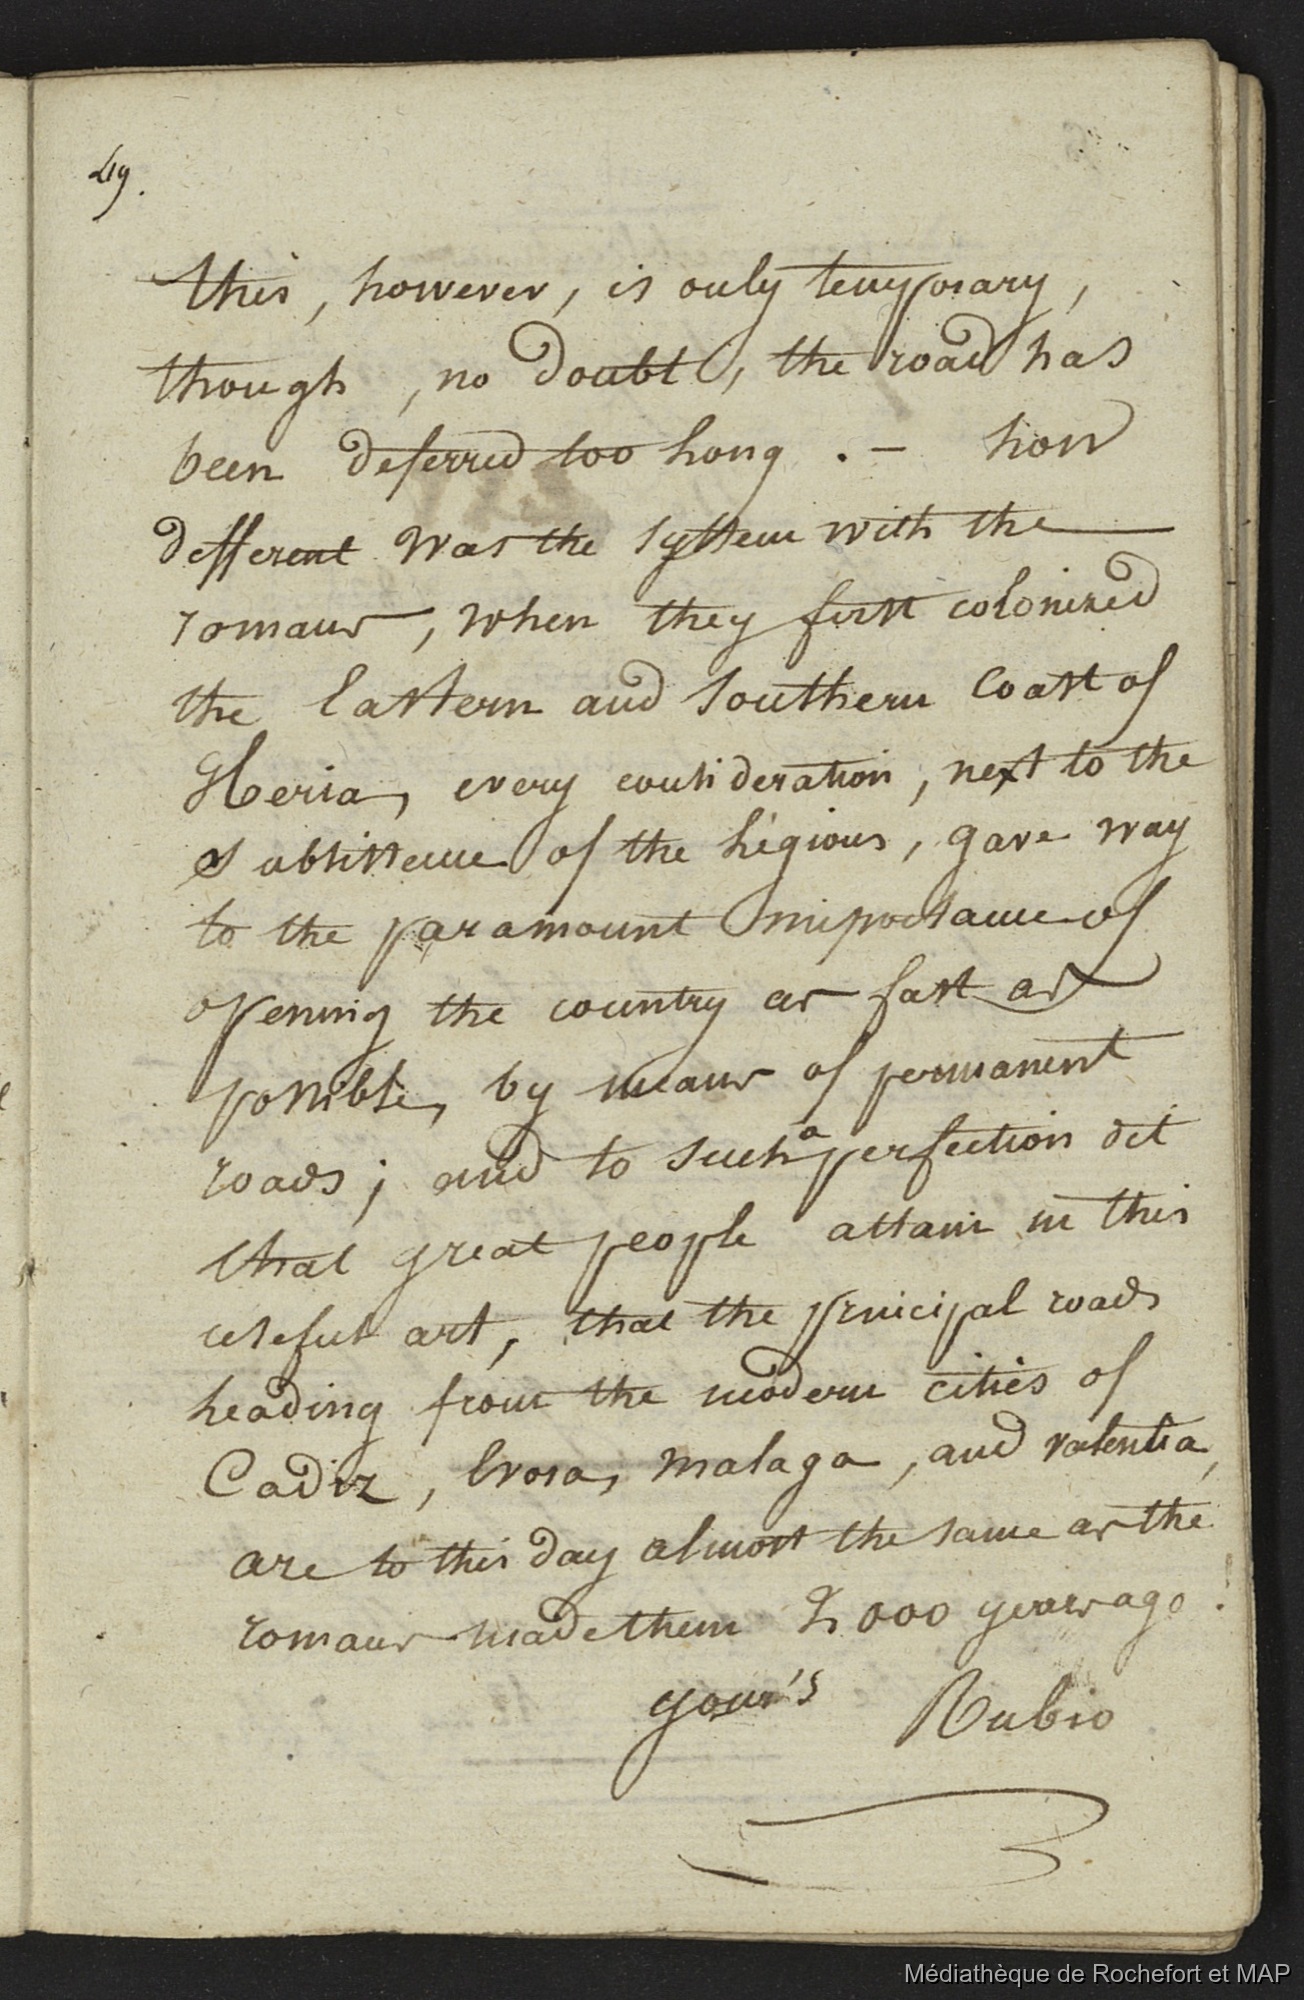 49.
this, however, is only temporary,
though, no doubt, the road has
been deferred too long. — how
different was the system with the
romans, when they first colonized
the Eastern and Southern Coast of
Iberia, every consideration, next to the
subsistence of the légions, gave way
to the paramount importance of
opening the country as fast as
possible, by means of permanent
roads; and to such a perfection did
that great people attain in this
useful art, that the principal roads
leading from the modern cities of
Cadiz, Evora, malaga, and valentia,
are to this day almost the same as the
romans made them 2,000 years ago!
your's Rubio
Médiathèque de Rochefort et MAP